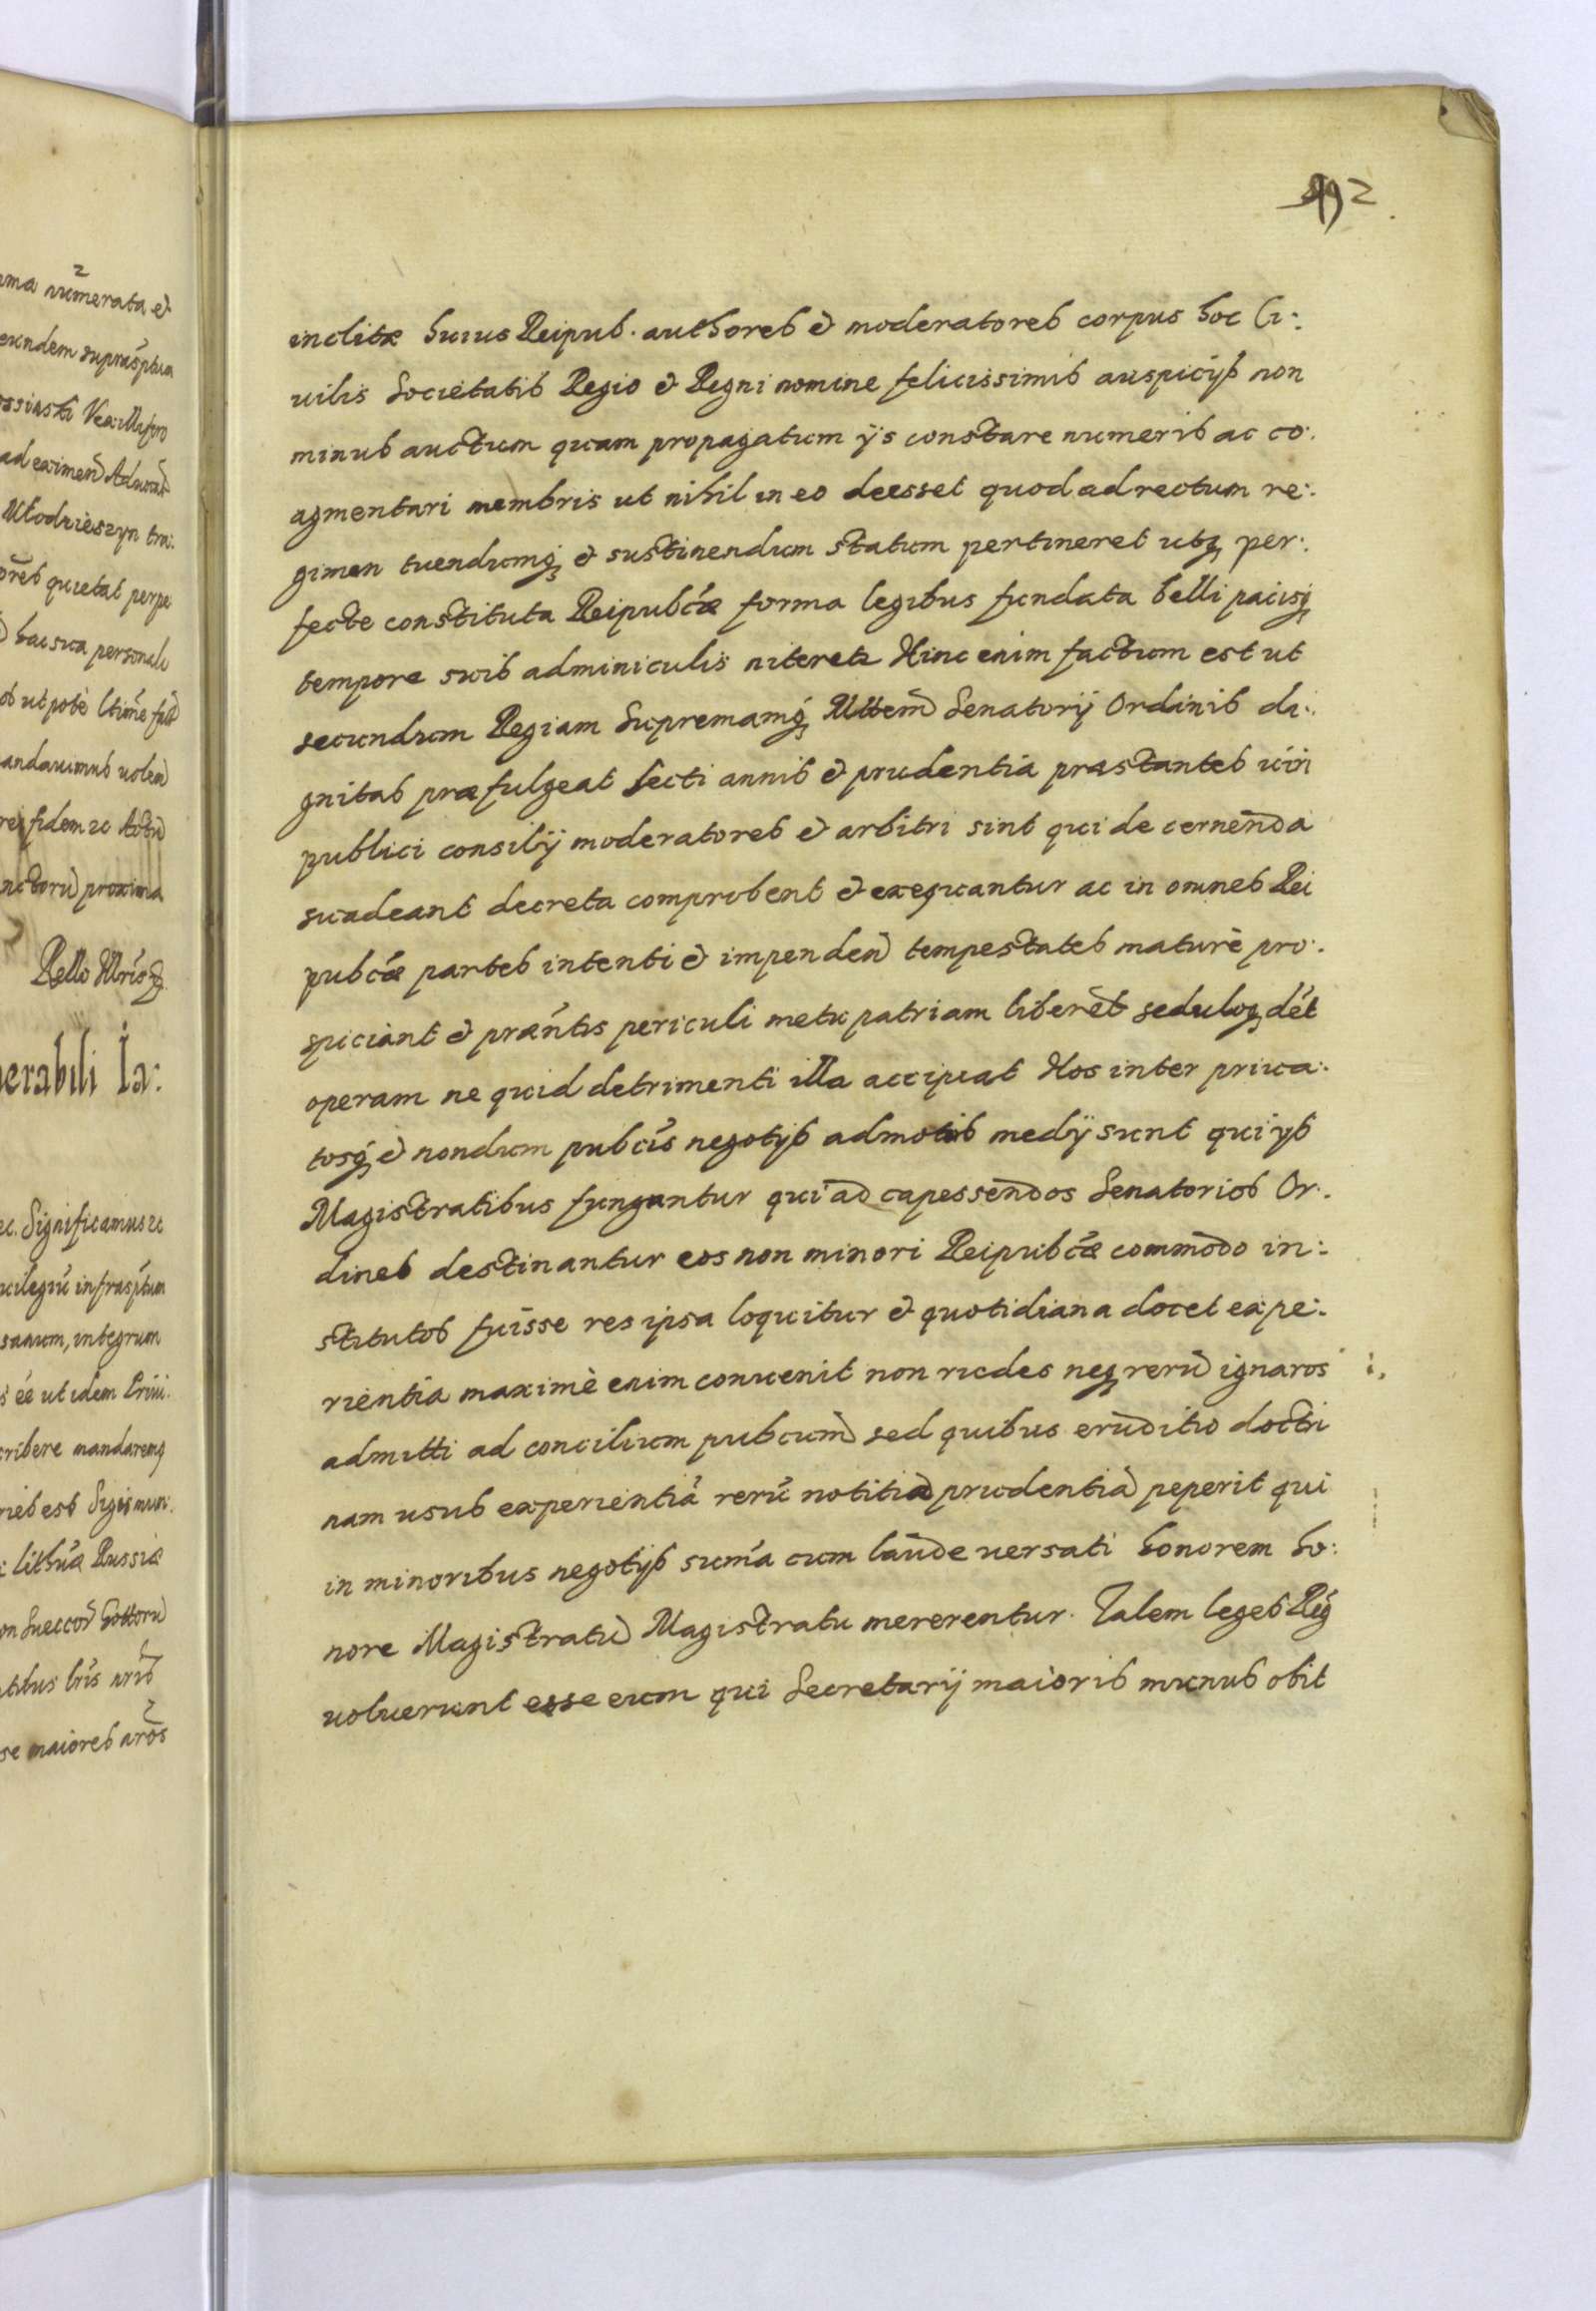 292
inclitæ huius Reipub. authores et moderatores corpus hoc Ci:
uilis Societatis Regio et Regni nomine felicissimis auspicijs non
minus auctum quam propagatum ijs constare numeris ac co:
agmentari membris ut nihil in eo deesset quod ad rectum re:
gimen tuendumq; et sustinendum statum pertineret utq; per:
fecte constituta Reipubcæ forma legibus fundata belli pacisq;
tempore suis adminiculis niteretr Hinc enim factum est ut
secundum Regiam Supremamq; Mttem Senatorij Ordinis di:
gnitas præfulgeat Lecti annis et prudentia præstantes uiri
publici consilij moderatores et arbitri sint qui de cernenda
suadeant decreta comprobent et exequantur ac in omnes Rei
pubcæ partes intenti et impenden tempestates maturè pro:
spiciant et præntis periculi metu patriam liberēt seduloq; dēt
operam ne quid detrimenti illa accipiat Hos inter priua:
tosq; et nondum pubcis negotijs admotis medij sunt qui ijs
Magistratibus funguntur qui ad capessendos Senatorios Or:
dines destinantur eos non minori Reipubcæ commodo in:
stitutos fuisse res ipsa loquitur et quotidiana docet expe:
rientia maximè enim conuenit non rudes neq; rerū ignaros
admitti ad concilium pubcum sed quibus eruditio doctri
nam usus experientiā rerū notitia prudentiā peperit qui
in minoribus negotijs sumā cum laude uersati honorem ho:
nore Magistratū Magistratu mererentur. Talem leges Reg
uoluerunt esse eum qui Secretarij maioris munus obit
ma numerata et
eundem suprasptum
Vexillifero
ad eximen Aduocat
Włodzieszyn tra:
quietat perpe
hac sua personali
utpote ltime
andauimus uolen
fidem etc Actū
proxima
Rello Mris
erabili Ia:
etc. Significamus etc
uilegiū infrasptum
saluum, integrum
ee ut idem Priui
cribere mandaremq;
Sigismun:
lithuæ Russiæ
on Sueccor Gottorū
tibus lris nris
se maiores nros